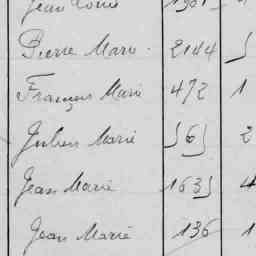 Jean Louis 1901
Pierre Marie 2144 5
François Marie 472 1
Julien Marie 565 2
Jean Marie 1635 4
Jean Marie 136 1